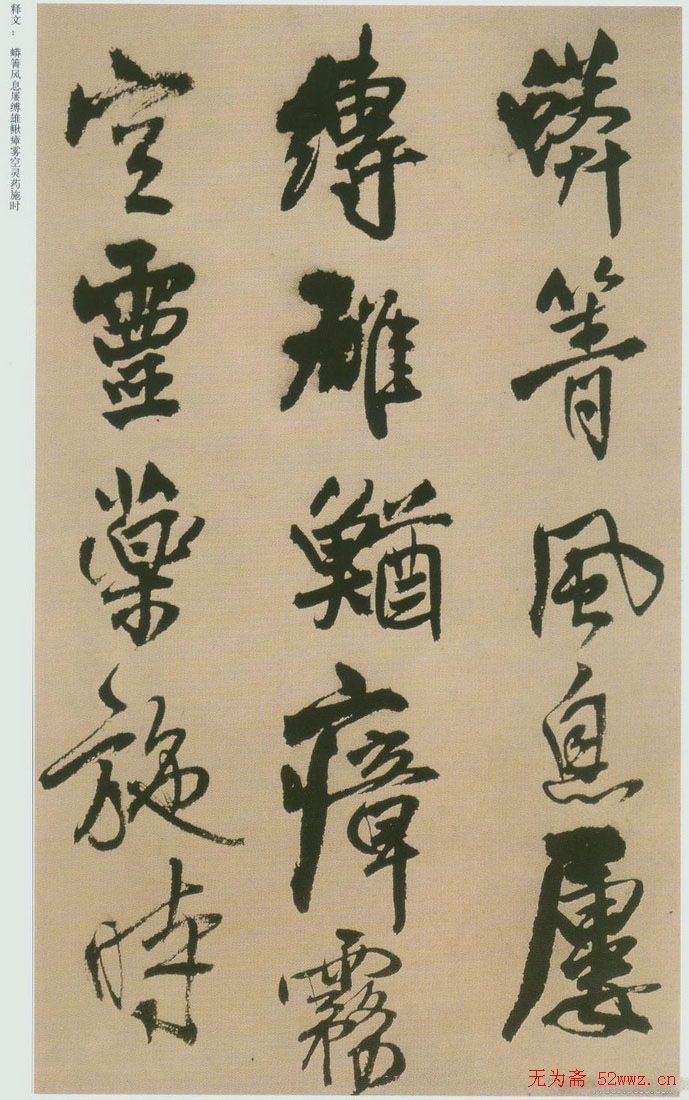 蟒箐風息屢
縛雄鰌瘴霧
空靈藥施時
释文：蟒箐风息屡缚雄鳅瘴雾空灵药施时
无为斋 52wwz.cn